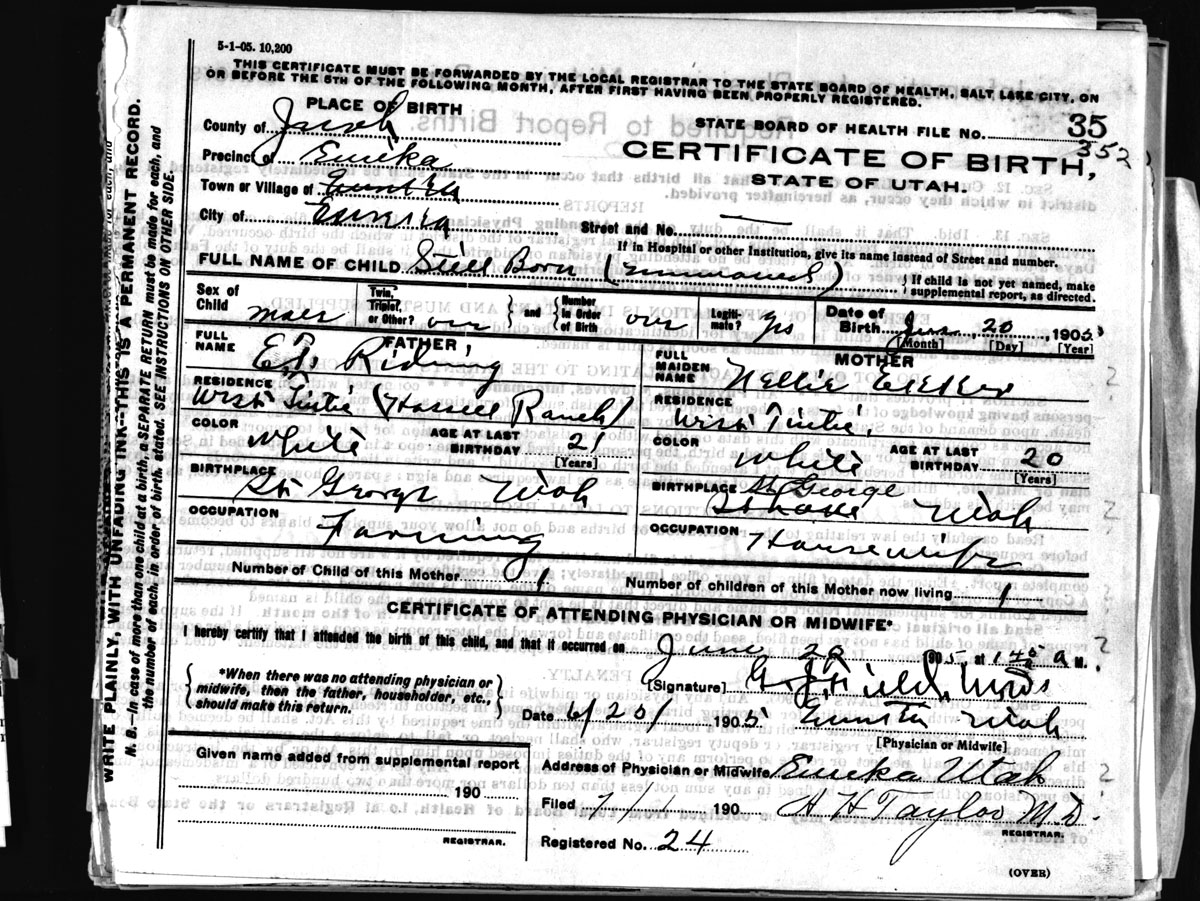 5-1-05. 10,200
THIS CERTIFICATE MUST BE FORWARDED BY THE LOCAL REGISTRAR TO THE STATE BOARD OF HEALTH, SALT LAKE CITY, ON
OR BEFORE THE 5TH OF THE FOLLOWING MONTH, AFTER FIRST HAVING BEEN PROPERLY REGISTERED.
PLACE OF BIRTH
STATE BOARD OF HEALTH FILE NO. 35
352
County of Juab
CERTIFICATE OF BIRTH,
STATE OF UTAH.
Precinct of Eureka
Town or Village of
City of Eureka
Street and No. —
If in Hospital or other Institution, give its name instead of Street and number.
FULL NAME OF CHILD Still Born
{ If child is not yet named, make
supplemental report, as directed.
Sex of
Child male
Twin,
Triplet,
or Other? one
} and {
Number
in Order
of Birth one
Legiti-
mate? yes
Date of
Birth June 20, 1905
[Month] [Day] [Year]
FATHER
FULL
NAME Riding
MOTHER
FULL
MAIDEN
NAME Nellie
RESIDENCE
West Tintic ( Ranch)
RESIDENCE
West Tintic
COLOR
White
AGE AT LAST
BIRTHDAY 21
[Years]
COLOR
White
AGE AT LAST
BIRTHDAY 20
[Years]
BIRTHPLACE
St George Utah
BIRTHPLACE St George
Utah
OCCUPATION
Farming
OCCUPATION
Housewife
Number of Child of this Mother 1
Number of children of this Mother now living 1
CERTIFICATE OF ATTENDING PHYSICIAN OR MIDWIFE*
I hereby certify that I attended the birth of this child, and that it occurred on June 20 1905 at 1 45 a M.
{ *When there was no attending physician or
midwife, then the father, householder, etc.,
should make this return. }
[Signature]
Date 6/20/ 1905 Utah
[Physician or Midwife]
Given name added from supplemental report
190
REGISTRAR.
Address of Physician or Midwife Eureka Utah
Filed 7/1 190 H H Taylor M.D.
REGISTRAR.
Registered No. 24
(OVER)
WRITE PLAINLY, WITH UNFADING INK--THIS IS A PERMANENT RECORD.
N. B.—In case of more than one child at a birth, a SEPARATE RETURN must be made for each, and
the number of each, in order of birth, stated. SEE INSTRUCTIONS ON OTHER SIDE.